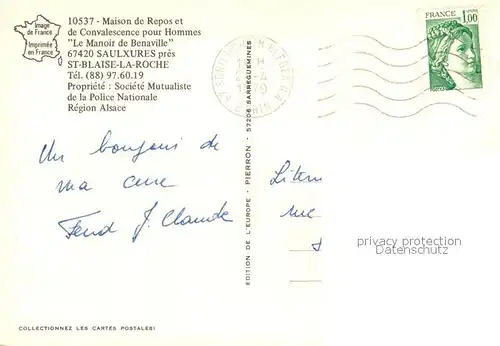 Image
de France
Imprimée
en France
10537 - Maison de Repos et
de Convalescence pour Hommes
"Le Manoir de Benaville"
67420 SAULXURES près
ST-BLAISE-LA-ROCHE
Tél. (88) 97.60.19
Propriété : Société Mutualiste
de la Police Nationale
Région Alsace
FRANCE
1,00
POSTES
Un bonjour de
ma cure
J. Claude
EDITION DE L'EUROPE - PIERRON - 57206 SARREGUEMINES
rue
privacy protection
Datenschutz
COLLECTIONNEZ LES CARTES POSTALES!